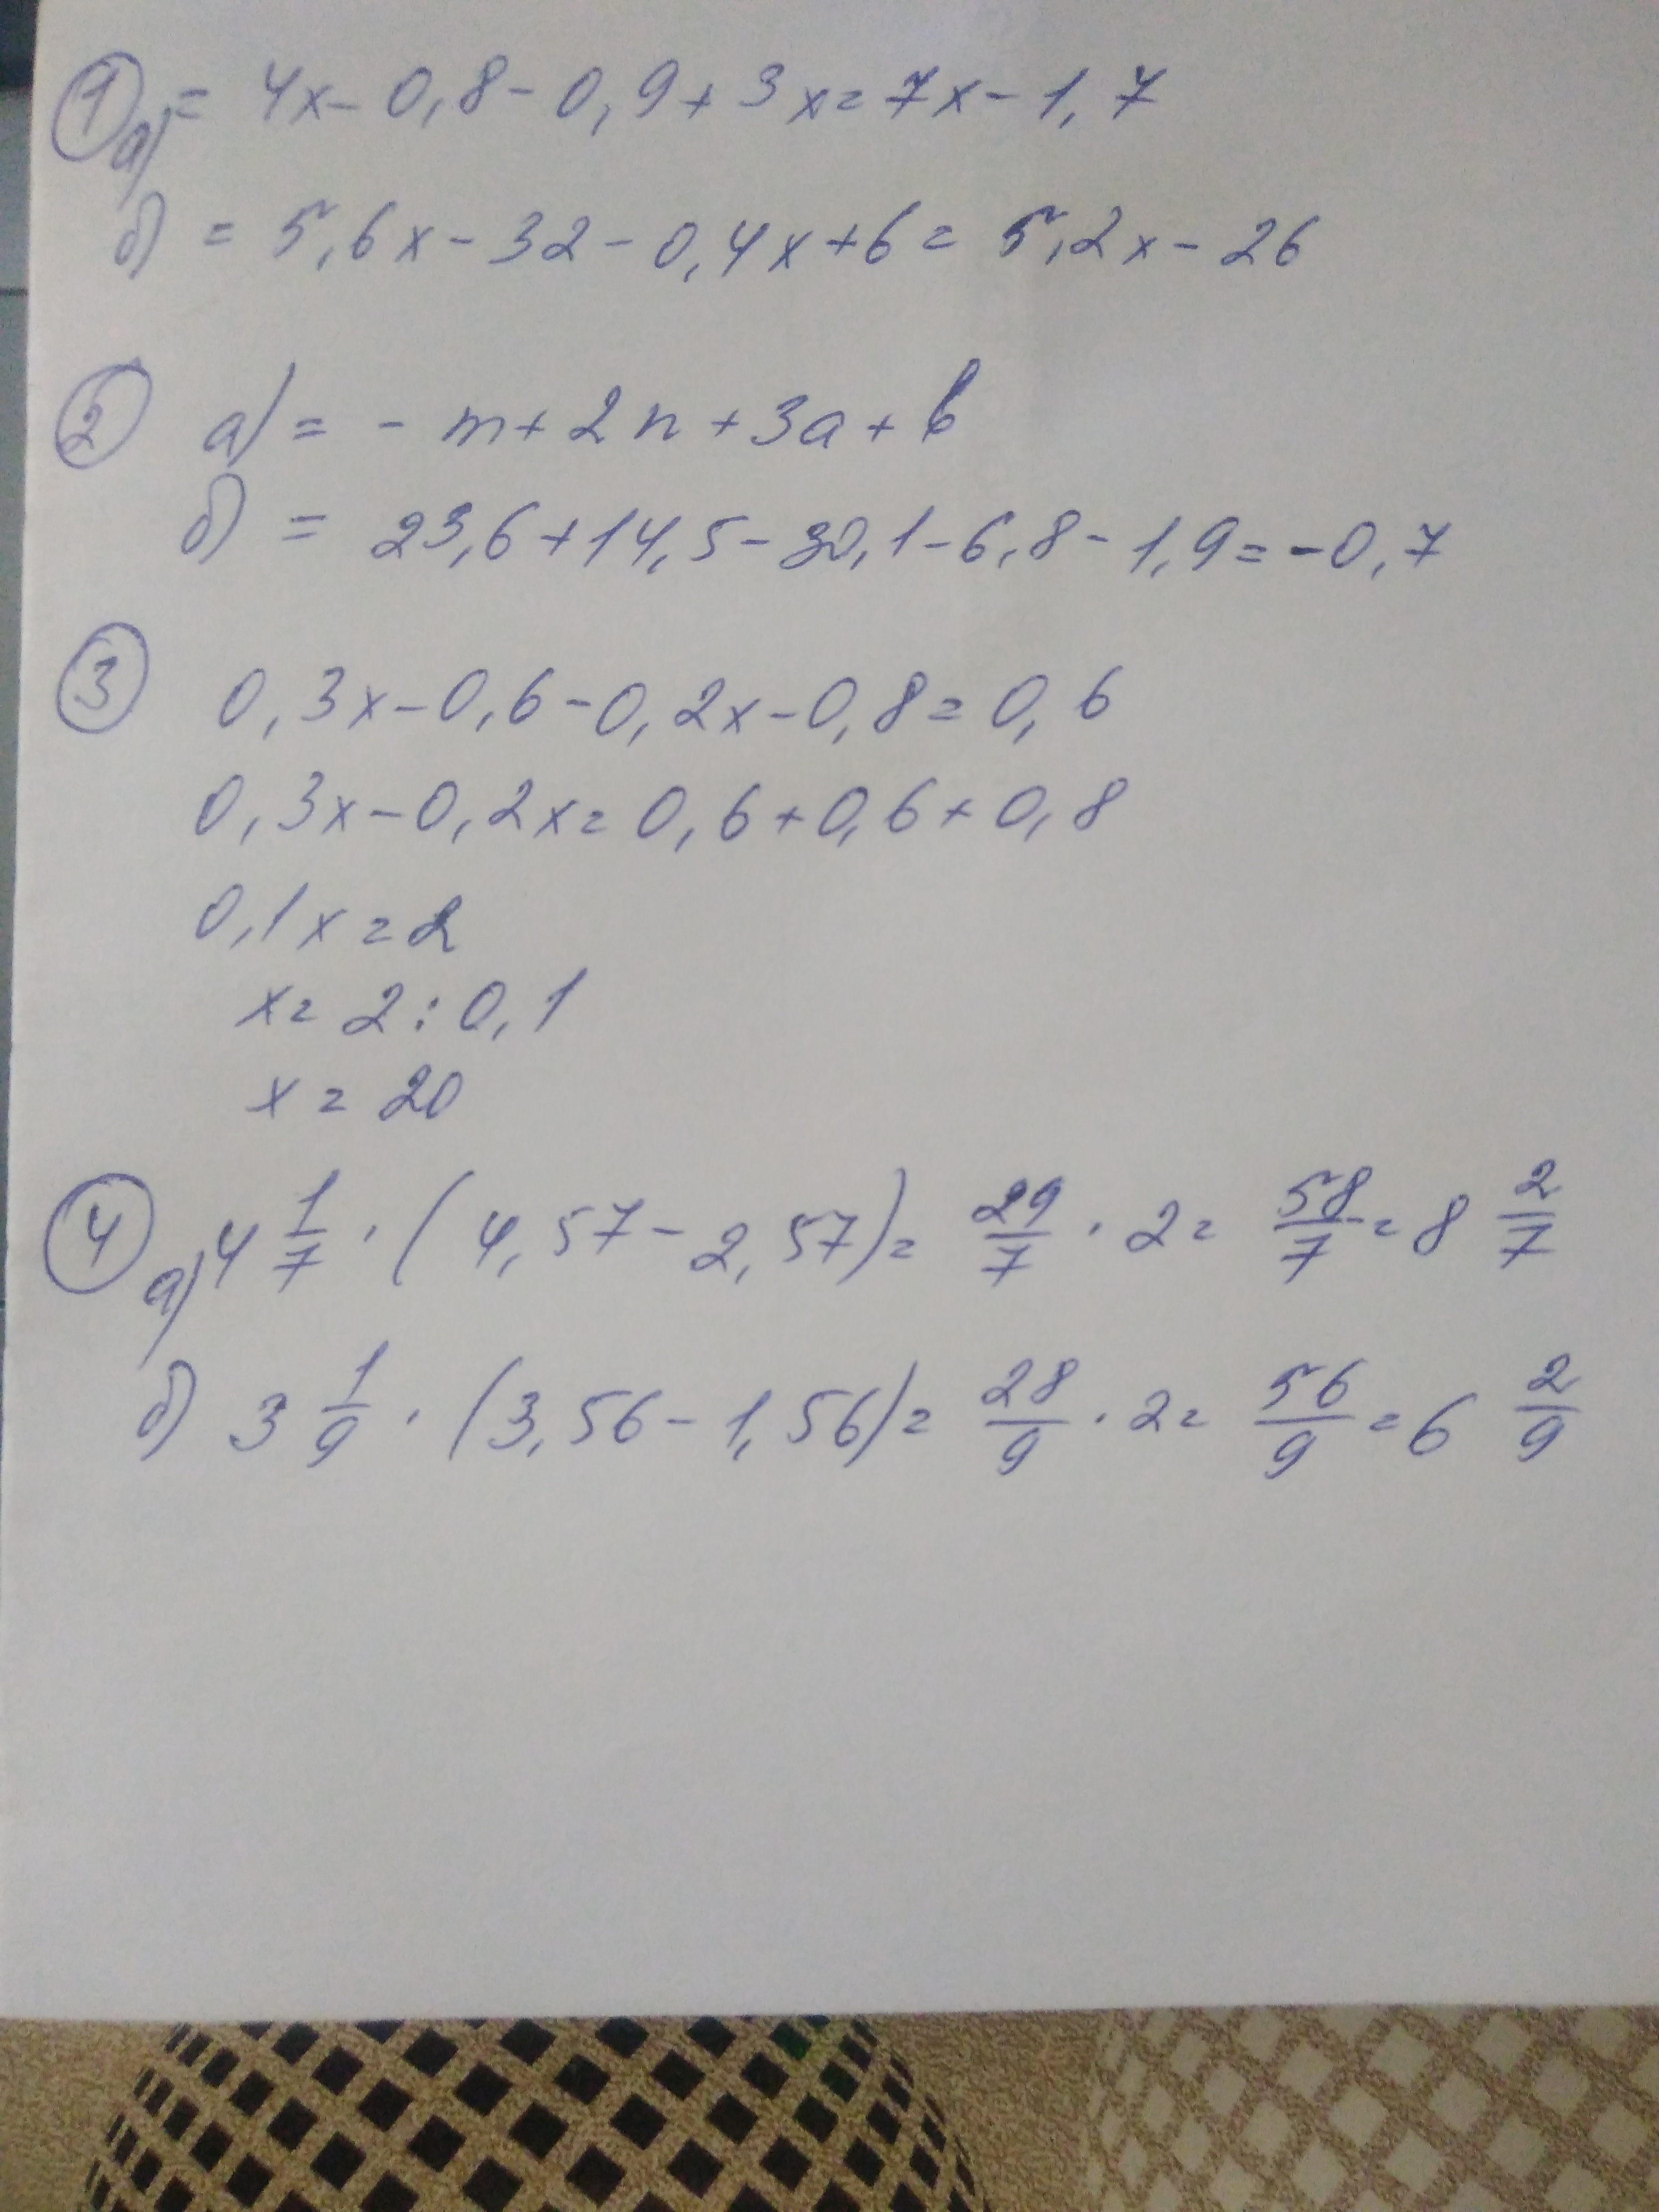 ① а) = 4x - 0,8 - 0,9 + 3x = 7x - 1,7
б) = 5,6x - 32 - 0,4x + 6 = 5,2x - 26
② а) = - m + 2n + 3a + b
б) = 23,6 + 14,5 - 30,1 - 6,8 - 1,9 = -0,7
③ 0,3x - 0,6 - 0,2x - 0,8 = 0,6
0,3x - 0,2x = 0,6 + 0,6 + 0,8
0,1x = 2
x = 2 : 0,1
x = 20
④ а) 4 1/7 · (4,57 - 2,57) = 29/7 · 2 = 58/7 = 8 2/7
б) 3 1/9 · (3,56 - 1,56) = 28/9 · 2 = 56/9 = 6 2/9